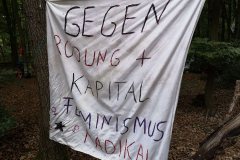 GEGEN
RODUNG +
KAPITAL
FEMINISMUS
RADIKAL